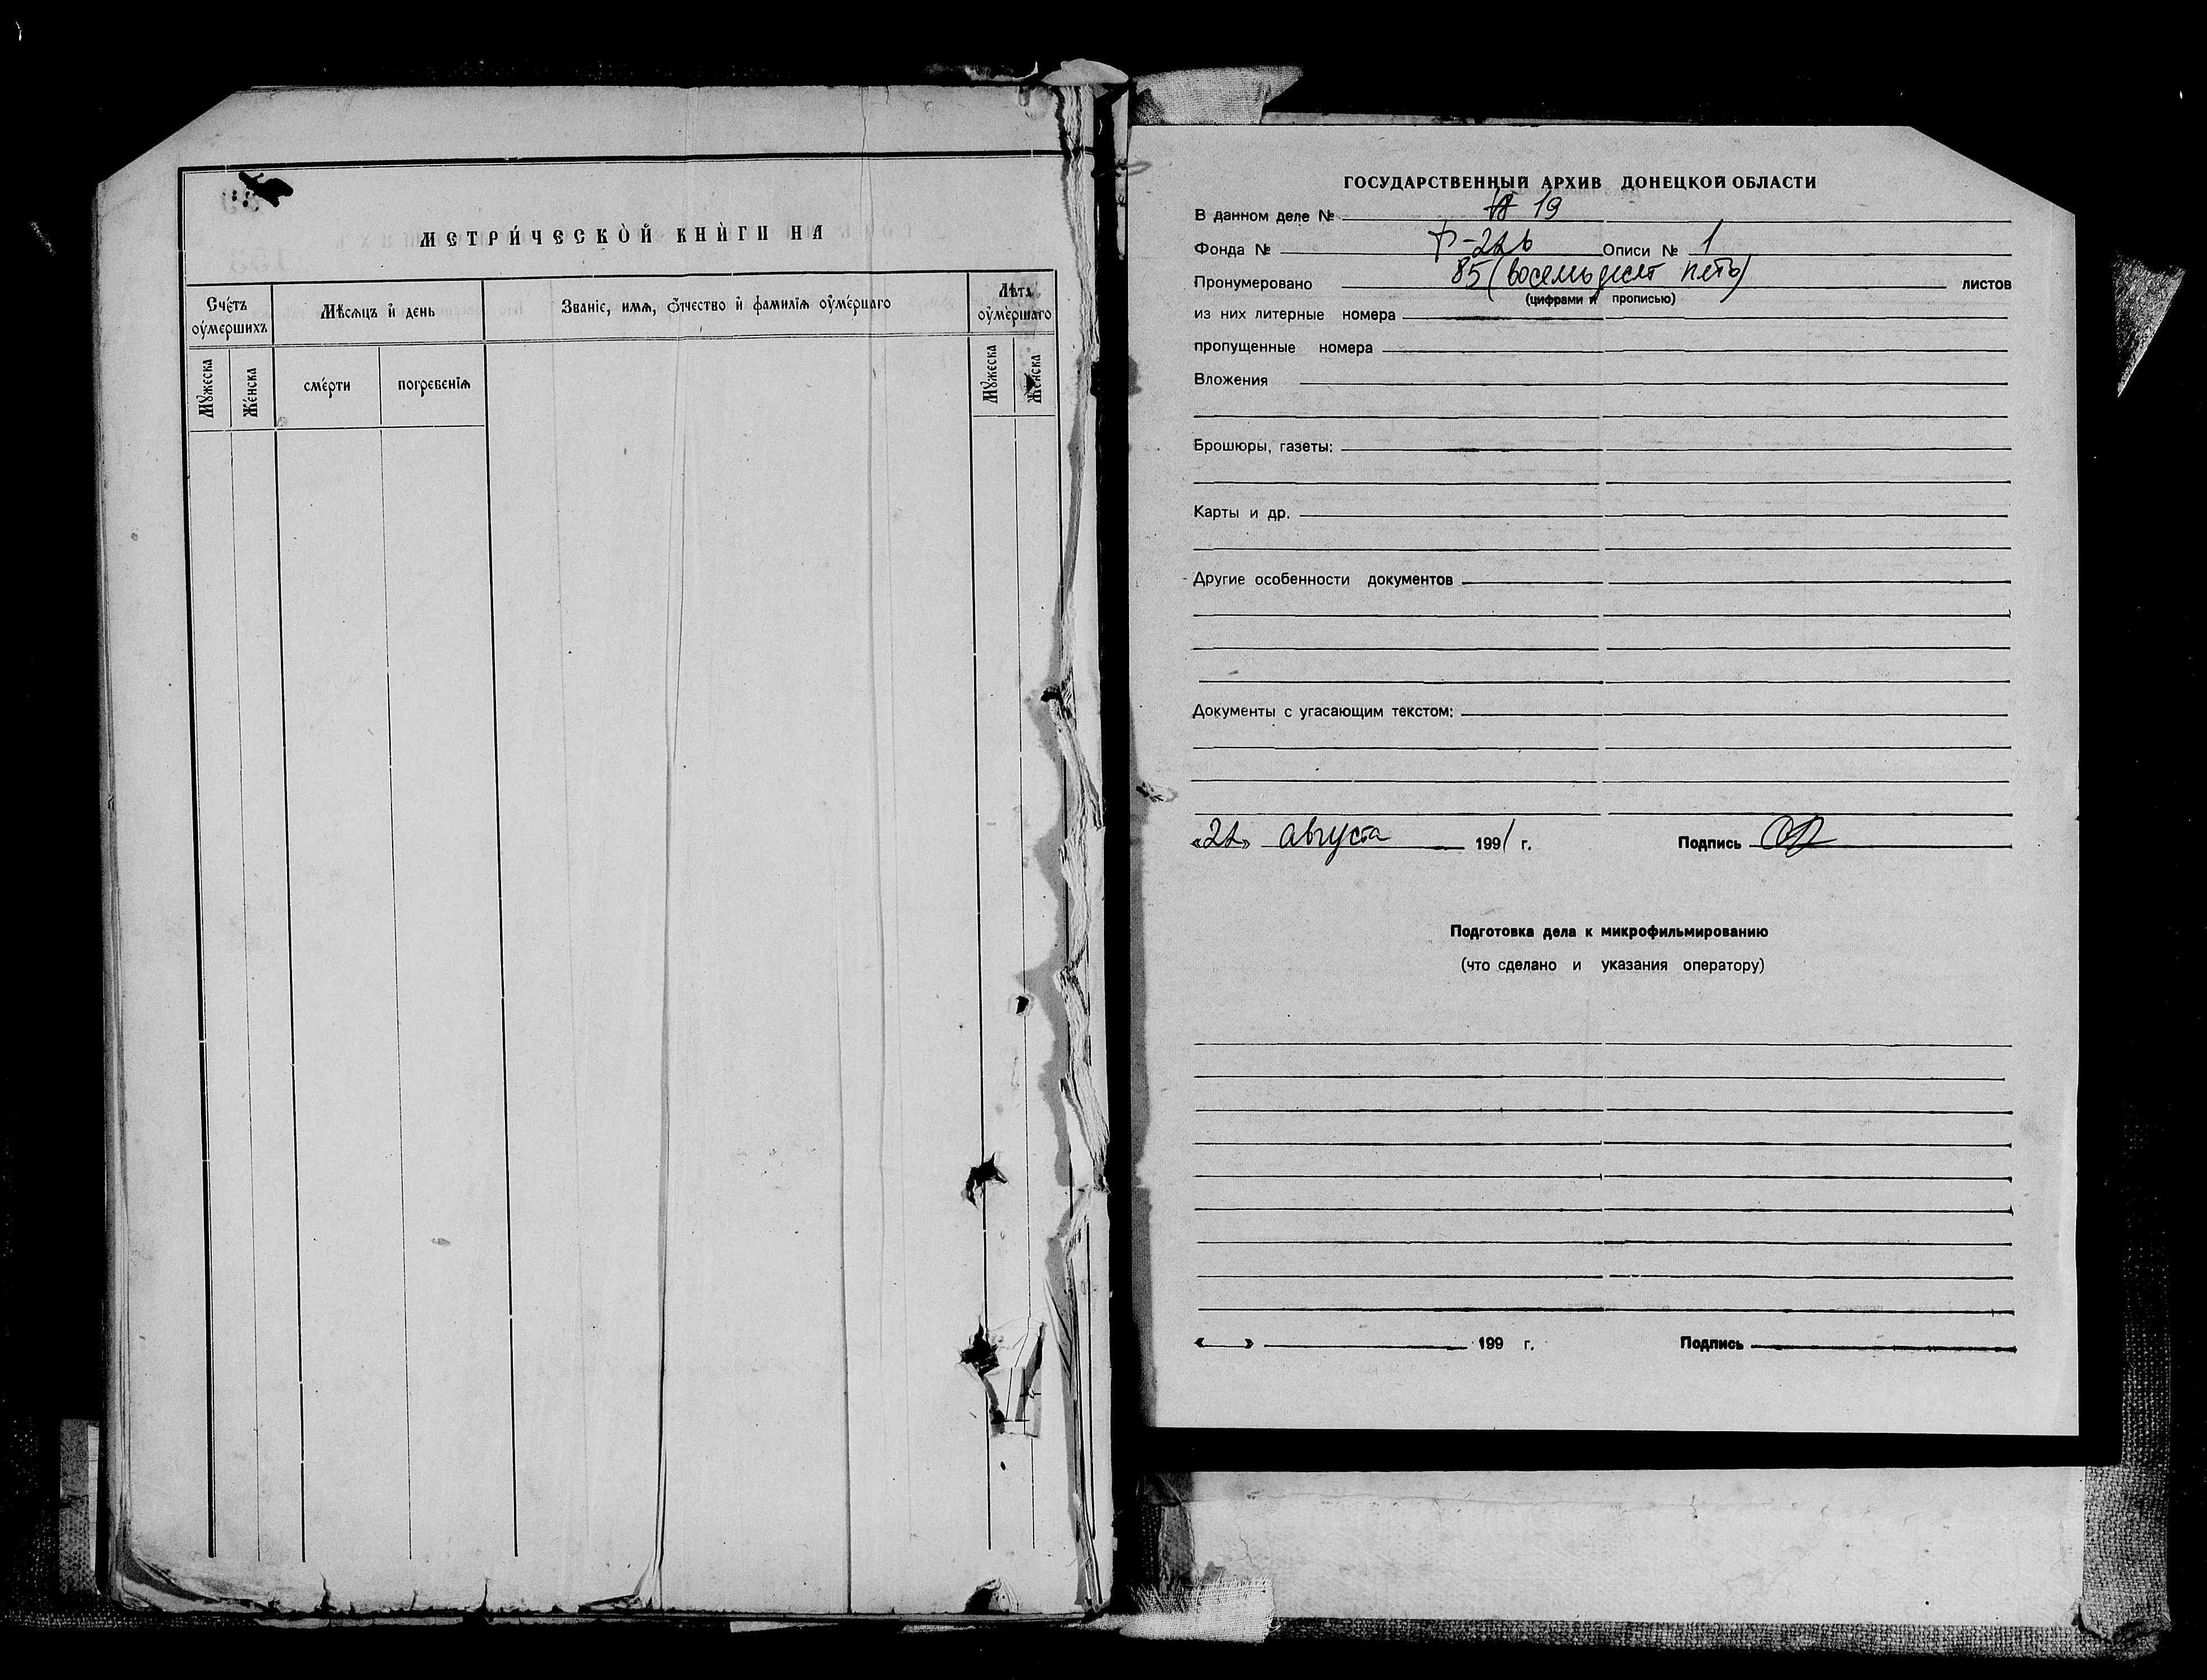 МЕТРИ́ЧЕСКО̀Й КНИ́ГИ НА
Сче́тъ оу҆ме́ршихъ
Мѣ́сѧцъ и҆ де́нь
Зва́нїе, и҆мѧ, ѻ҆́тчество и҆ фами́лїѧ оу҆ме́ршагѡ
Лѣ́та оу҆ме́ршагѡ
Мꙋ́жеска
Же́нска
сме́рти
погребе́нїѧ
Мꙋ́жеска
Же́нска
ГОСУДАРСТВЕННЫЙ АРХИВ ДОНЕЦКОЙ ОБЛАСТИ
В данном деле № 19
Фонда № Ф-226 Описи № 1
Пронумеровано 85 (восемьдесят пять) листов
(цифрами и прописью)
из них литерные номера
пропущенные номера
Вложения
Брошюры, газеты:
Карты и др.
Другие особенности документов
Документы с угасающим текстом:
«22» августа 1991 г. Подпись
Подготовка дела к микрофильмированию
(что сделано и указания оператору)
« » 199 г. Подпись